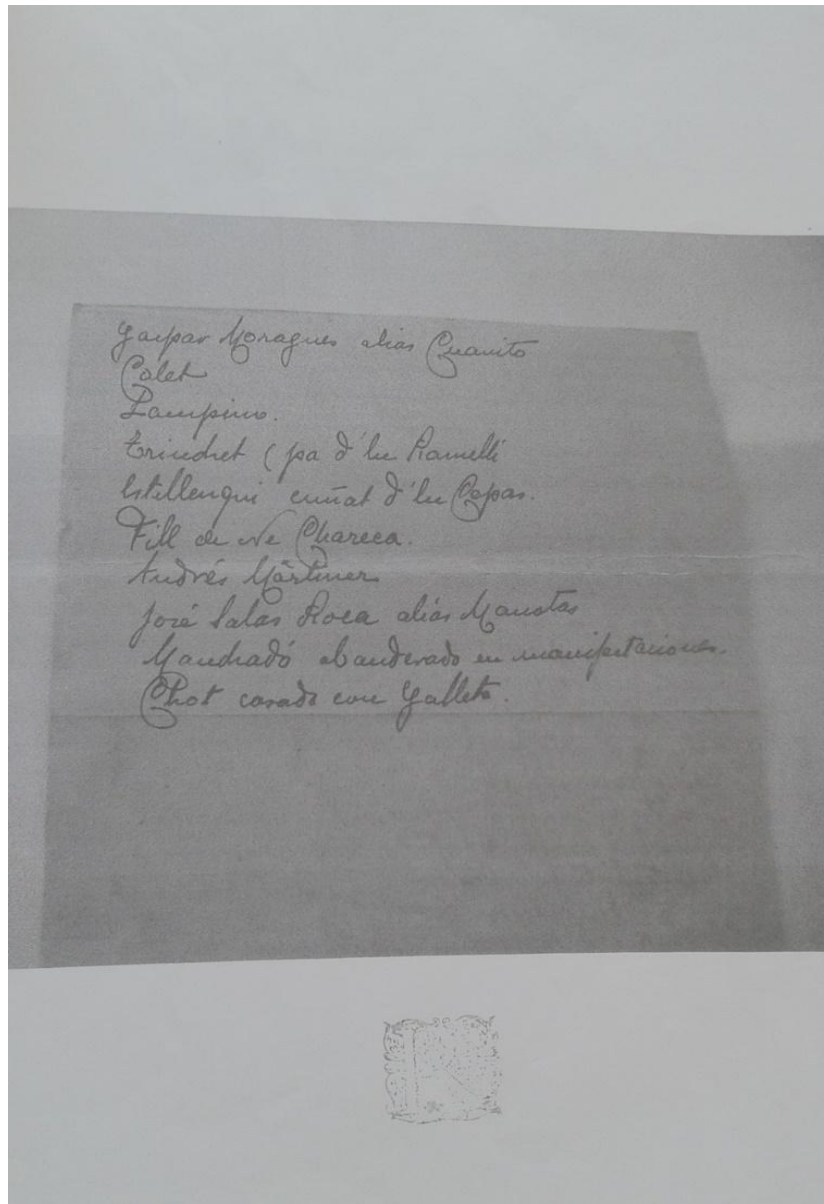 Gaspar Moragues alias Cuanito
Colet
Pampino.
Trinchet (pa d'en Ramelli
Estellenqui cuñat d'en Cepas.
Fill de Ne Chareca.
Andrés Mártinez
José Salas Roca alias Manotas
Mandradó abanderado en manifestaciones.
Chot casado con Galleta.